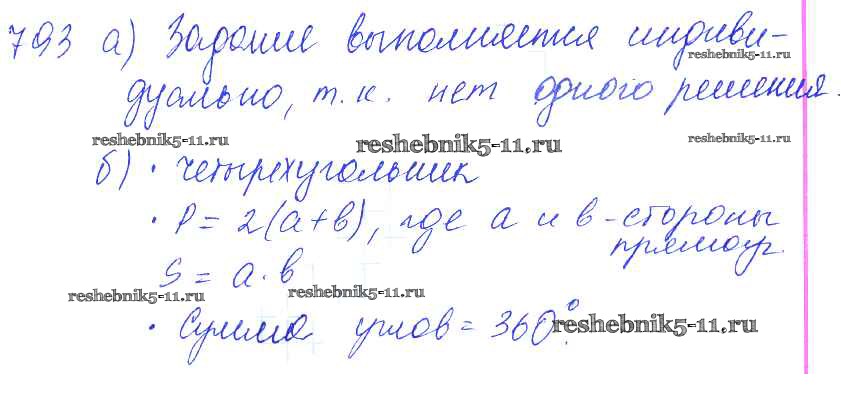 793 а) Задание выполняется индиви-
reshebnik5-11.ru
дуально, т.к. нет одного решения.
reshebnik5-11.ru reshebnik5-11.ru reshebnik5-11.ru
б) · четырехугольник
· P = 2(a+b), где a и b - стороны
прямоуг.
S = a · b
reshebnik5-11.ru reshebnik5-11.ru
· Сумма углов = 360°.
reshebnik5-11.ru